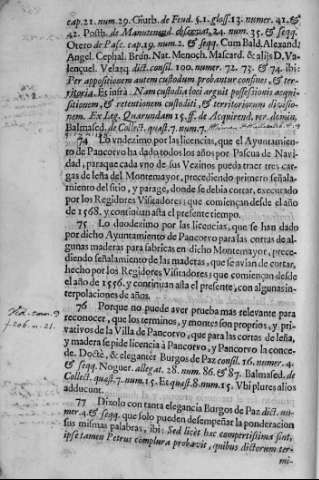 cap. 21. num. 29. Gurb. de Feud. §. 1. gloss. 13. numer. 41. &
42. Posth. de Manutenend. observat. 24. num. 35. & seqq.
Otero de Pasc. cap. 19. num. 2. & seqq. Cum Bald. Alexand.
Angel. Cephal. Brun. Nat. Menoch. Mascard. & alijs D. Va-
lençuel. Velazq. dict. consil. 100. numer. 72. 73. & 74. ibi:
Per appositionem autem custodum probantur confines, & ter-
ritoria. Et infrà. Nam custodia loci arguit possessionis acqui-
sitionem, & retentionem custoditi, & territoriorum divisio-
nem. Ex Leg. Quamdam 15. ff. de Acquirend. rer. domin.
Balmased. de Collect. quæst. 7. num. 7.
74 Lo vndezimo por las licencias, que el Ayuntamiento
de Pancorvo ha dado todos los años por Pascua de Navi-
dad, para que cada vno de sus Vezinos pueda traer tres car-
gas de leña del Montemayor, precediendo primero señala-
miento del sitio, y parage, donde se debia cortar, executado
por los Regidores Visitadores: que comiençan desde el año
de 1568. y continuan asta el presente tiempo.
75 Lo duodezimo por las licencias, que se han dado
por dicho Ayuntamiento de Pancorvo para las cortas de al-
gunas maderas para fabricas en dicho Montemayor, prece-
diendo señalamiento de las maderas, que se avian de cortar,
hecho por los Regidores Visitadores: que comiençan desde
el año de 1556. y continuan asta el presente, con algunas in-
terpolaciones de años.
76 Porque no puede aver prueba mas relevante para
reconocer, que los terminos, y montes son proprios, y pri-
vativos de la Villa de Pancorvo, que para las cortas de leña,
y madera se pide licencia à Pancorvo, y Pancorvo la conce-
de. Doctè, & eleganter Burgos de Paz consil. 16. numer. 4.
& seqq. Noguer. allegat. 28. num. 86. & 87. Balmased. de
Collect. quæst. 7. num. 15. Et quæst. 8. num. 15. Vbi plures alios
adducunt.
77 Dixolo con tanta elegancia Burgos de Paz dict. nu-
mer. 4. & seqq. que solo pueden desempeñar la ponderacion
sus mismas palabras, ibi: Sed licèt hæc compertissima sint,
ipse tamen Petrus complura probavit, quibus dictorum ter-
mi-